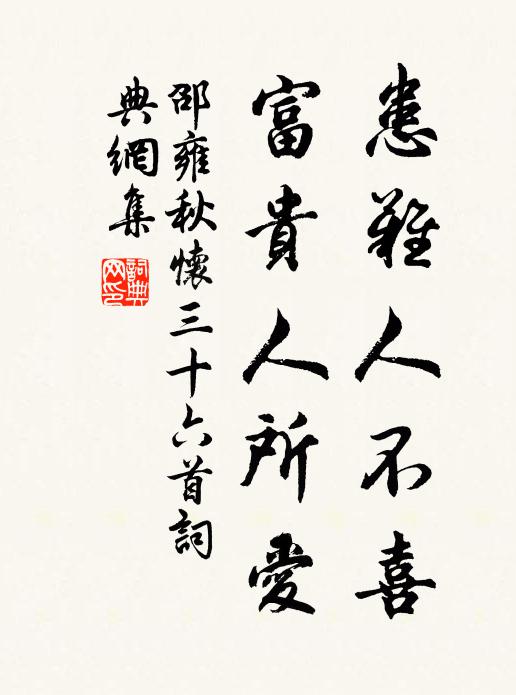 患難人不喜
富貴人所愛
邵雍秋懷三十六首詞
典網集
詞典
网印